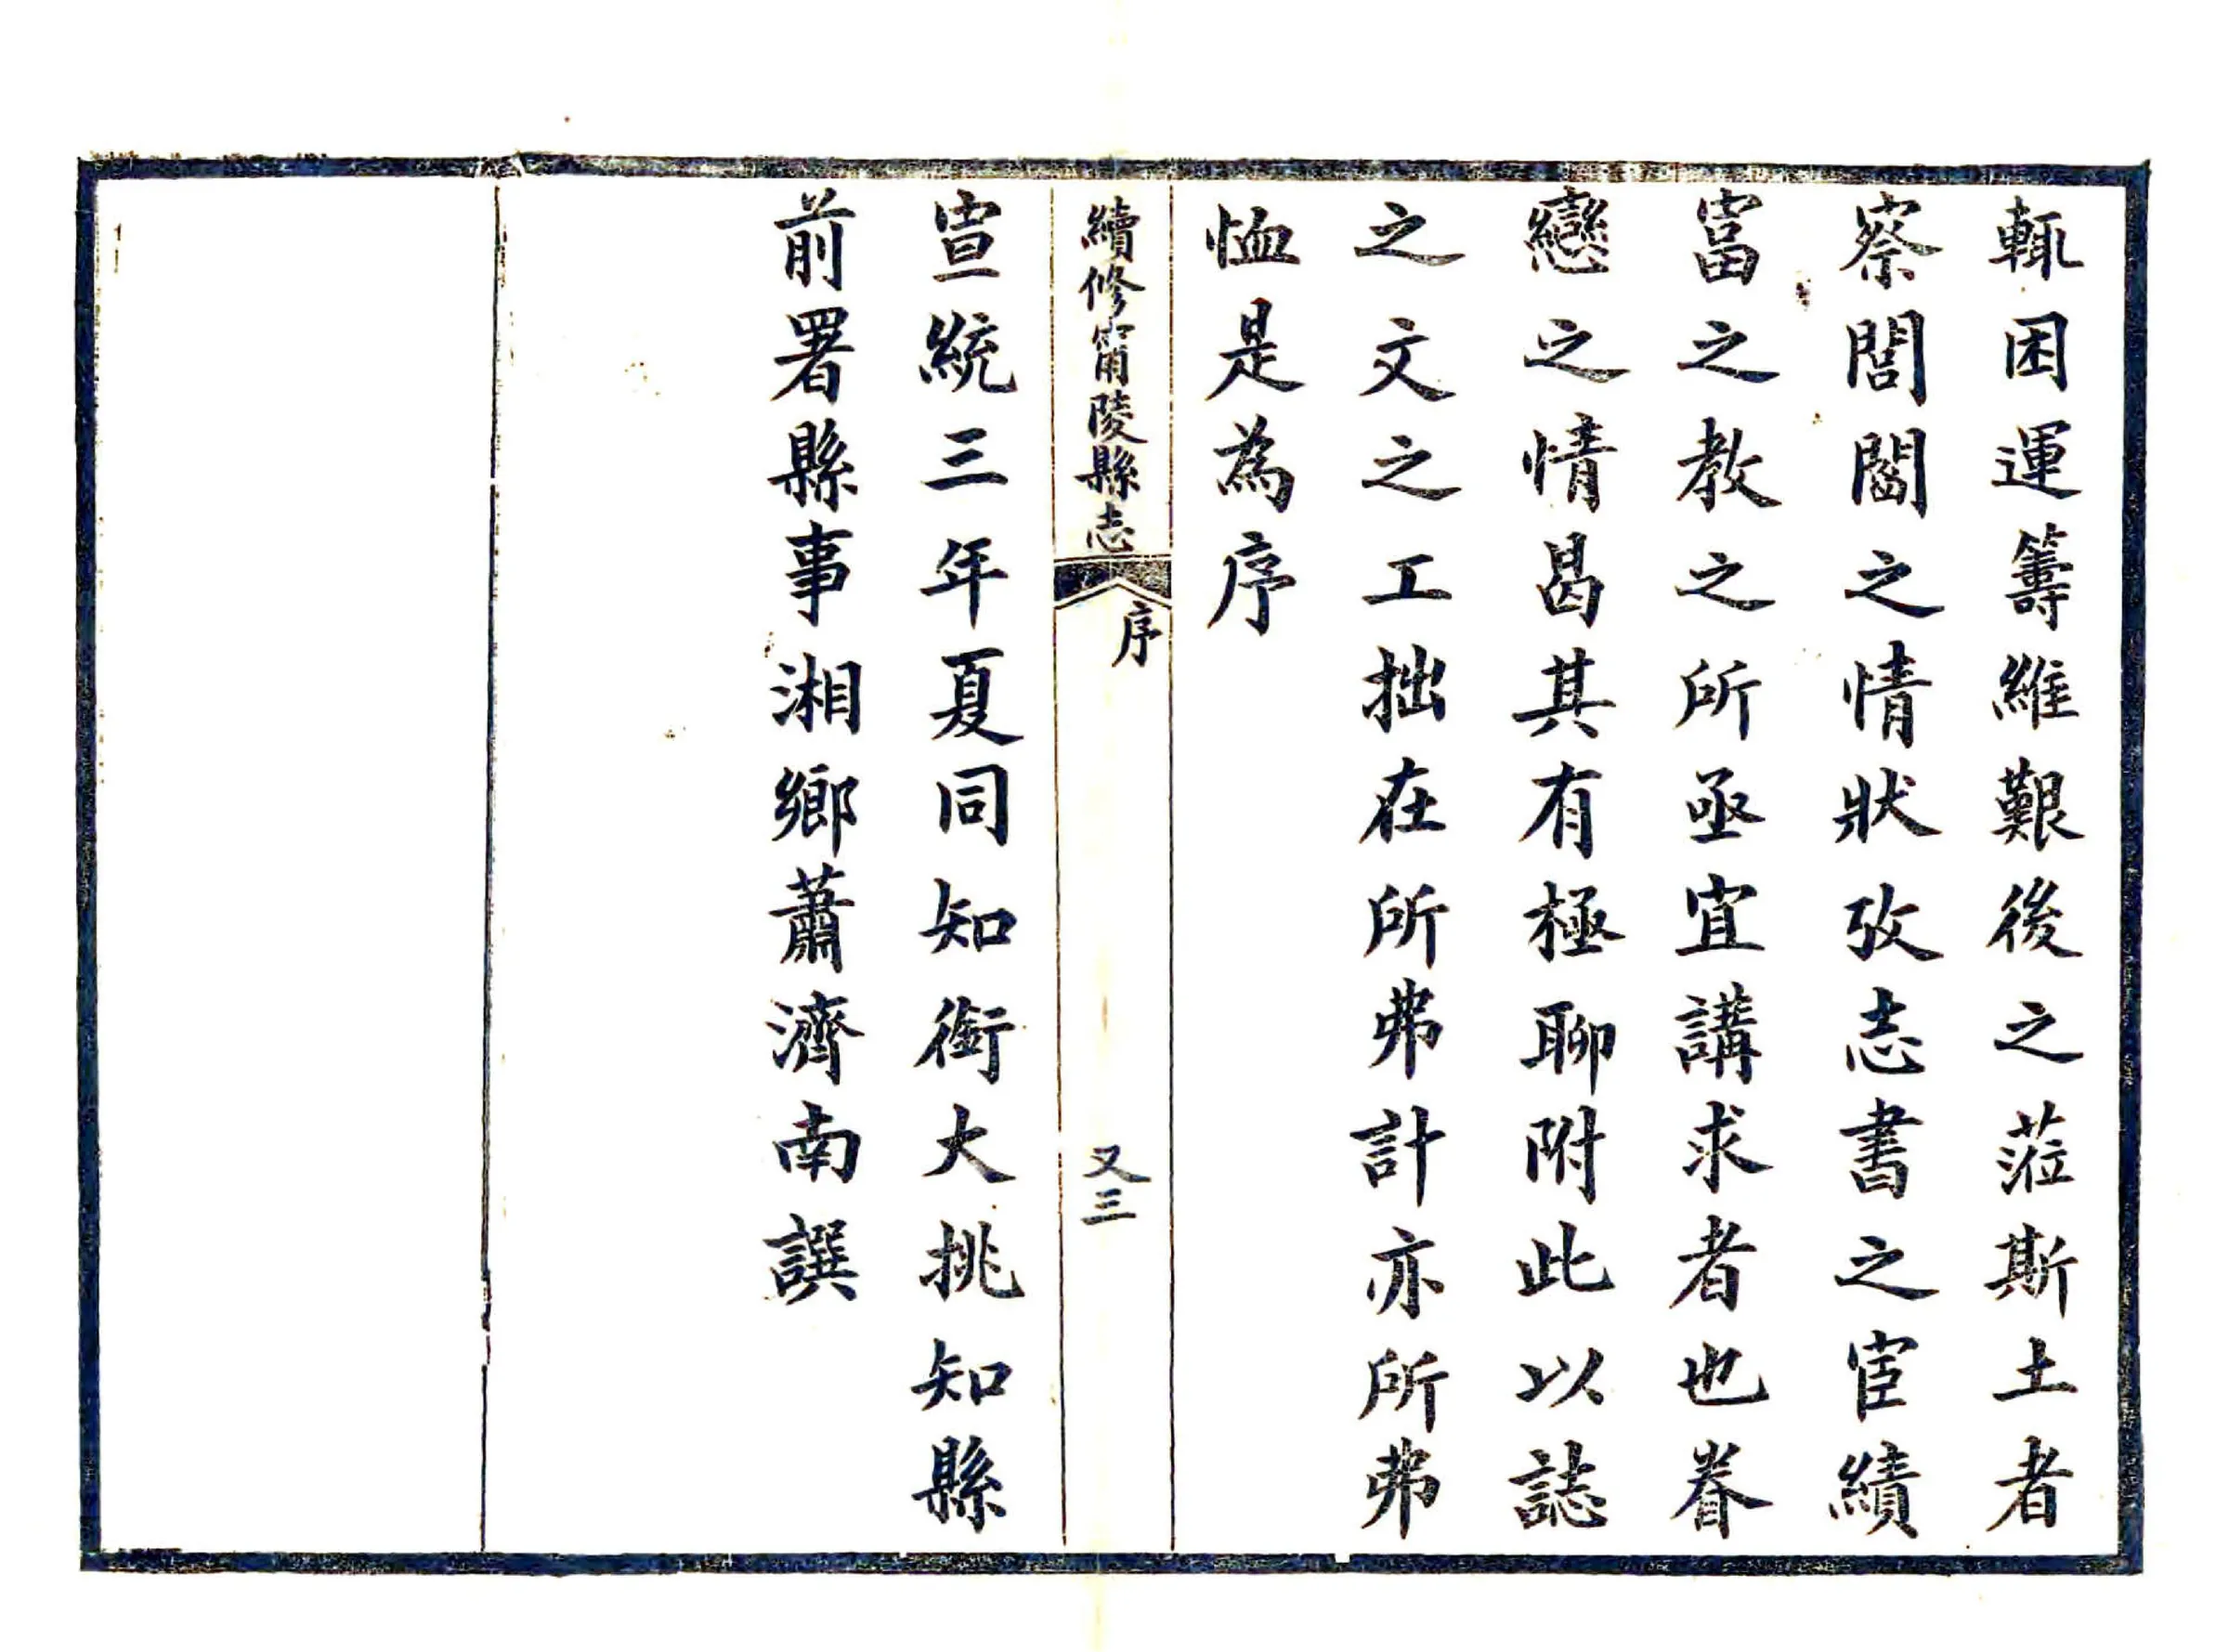 輒困運籌維艱後之蒞斯土者
察閭閻之情狀攷志書之宦績
富之教之所亟宜講求者也眷
戀之情曷其有極聊附此以誌
之文之工拙在所弗計亦所弗
恤是為序
續修甯陵縣志
序
又三
宣統三年夏同知銜大挑知縣
前署縣事湘鄉蕭濟南譔